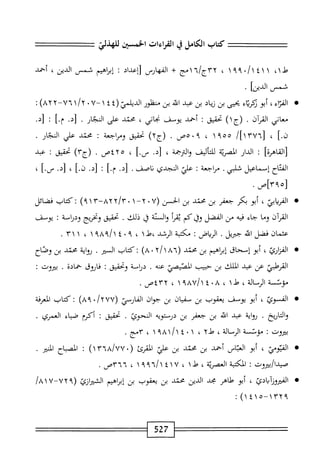 كتاب الكامل في القراءات الخمسين للهذليّ
ط١، ١٤١١/١٩٩٠ ، ٣٢ج/١٦مج + الفهارس [إعداد : إبراهيم شمس الدين ، أحمد
شمس الدين] .
• الفرّاء ، أبو زكريّاء يحيى بن زياد بن عبد الله بن منظور الديلميّ (١٤٤-٢٠٧/٧٦١-٨٢٢):
معاني القرآن . (ج١) تحقيق : أحمد يوسف نجاتي ، محمّد علي النجّار . [د. م.] : [د.
ن.] ، [١٣٧٦]/ ١٩٥٥ ، ٥٠٩ص . (ج٢) تحقيق ومراجعة : محمّد علي النجّار .
[القاهرة] : الدار المصريّة للتأليف والترجمة ، [د. س.] ، ٤٢٥ص . (ج٣) تحقيق : عبد
الفتّاح إسماعيل شلبي . مراجعة : عليّ النجدي ناصف . [د. م.] : [د. ن.] ، [د. س.] ،
[٣٩٥]ص .
• الفريابيّ ، أبو بكر جعفر بن محمّد بن الحسن (٢٠٧-٣٠١/٨٢٢-٩١٣) : كتاب فضائل
القرآن وما جاء فيه من الفضل وفي كم يُقرأ والسنّة في ذلك . تحقيق وتخريج ودراسة : يوسف
عثمان فضل الله جبريل . الرياض : مكتبة الرشد ،ط١ ، ١٤٠٩/١٩٨٩ ، ٣١١ .
• الفزاريّ ، أبو إسحاق إبراهيم بن محمّد (١٨٦/٨٠٢) : كتاب السير . رواية محمّد بن وضّاح
القرطبيّ عن عبد الملك بن حبيب المصّيصيّ عنه . دراسة وتحقيق : فاروق حمادة . بيروت :
مؤسّسة الرسالة ، ط١ ، ١٤٠٨/١٩٨٧ ، ٤٣٢ص .
• الفسويّ ، أبو يوسف يعقوب بن سفيان بن جوان الفارسيّ (٢٧٧/٨٩٠) : كتاب المعرفة
والتاريخ . رواية عبد الله بن جعفر بن درستويه النحويّ . تحقيق : أكرم ضياء العمري .
بيروت : مؤسّسة الرسالة ، ط٢ ، ١٤٠١/١٩٨١ ، ٣مج .
• الفيّوميّ ، أبو العبّاس أحمد بن محمّد بن عليّ المقرئ (٧٧٠/١٣٦٨) : المصباح المنير .
صيدا/بيروت : المكتبة العصريّة ، ط١ ، ١٤١٧/١٩٩٦ ، ٣٦٦ص .
• الفيروزآباديّ ، أبو طاهر مجد الدين محمّد بن يعقوب بن إبراهيم الشيرازيّ (٧٢٩-٨١٧/
١٣٢٩-١٤١٥) :
527